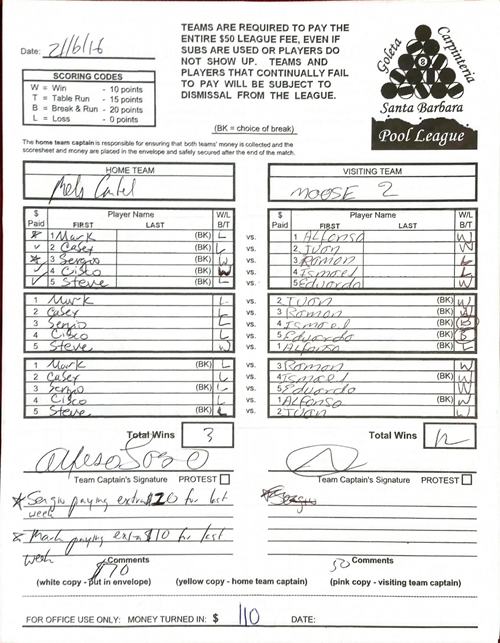 Date: 2/16/16
TEAMS ARE REQUIRED TO PAY THE
ENTIRE $50 LEAGUE FEE, EVEN IF
SUBS ARE USED OR PLAYERS DO
NOT SHOW UP. TEAMS AND
PLAYERS THAT CONTINUALLY FAIL
TO PAY WILL BE SUBJECT TO
DISMISSAL FROM THE LEAGUE.
SCORING CODES
W = Win - 10 points
T = Table Run - 15 points
B = Break & Run - 20 points
L = Loss - 0 points
Goleta
Carpinteria
8
Santa Barbara
Pool League
(BK = choice of break)
The home team captain is responsible for ensuring that both teams' money is collected and the
scoresheet and money are placed in the envelope and safely secured after the end of the match.
HOME TEAM
VISITING TEAM
MOOSE 2
$ Paid Player Name FIRST LAST W/L B/T
$ Paid Player Name FIRST LAST W/L B/T
1 Mark (BK) L vs. 1 Alfonso W
2 Casey (BK) L vs. 2 Juan W
3 Sergio (BK) W vs. 3 Ramon L
4 Cisco (BK) W vs. 4 Ismael L
5 Steve (BK) L vs. 5 Eduardo W
1 Mark L vs. 2 Juan (BK) W
2 Casey L vs. 3 Ramon (BK) W
3 Sergio L vs. 4 Ismael (BK) B
4 Cisco L vs. 5 Eduardo (BK) B
5 Steve W vs. 1 Alfonso (BK) L
1 Mark (BK) L vs. 3 Ramon W
2 Casey L vs. 4 Ismael (BK) W
3 Sergio (BK) L vs. 5 Eduardo W
4 Cisco L vs. 1 Alfonso (BK) W
5 Steve (BK) L vs. 2 Juan W
Total Wins 3
Total Wins 12
Team Captain's Signature PROTEST
Team Captain's Signature PROTEST
Sergio paying extra $20 for last
week
Sergio
Mark paying extra $10 for last
week
Comments
$70
50 Comments
(white copy - put in envelope) (yellow copy - home team captain) (pink copy - visiting team captain)
FOR OFFICE USE ONLY: MONEY TURNED IN: $ 110 DATE: